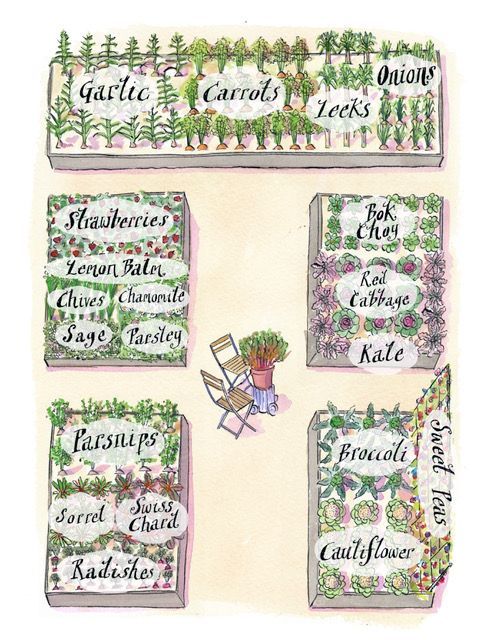 Garlic
Carrots
Leeks
Onions
Strawberries
Lemon Balm
Chives
Chamomile
Sage
Parsley
Bok
Choy
Red
Cabbage
Kale
Parsnips
Sorrel
Swiss
Chard
Radishes
Broccoli
Cauliflower
Sweet Peas